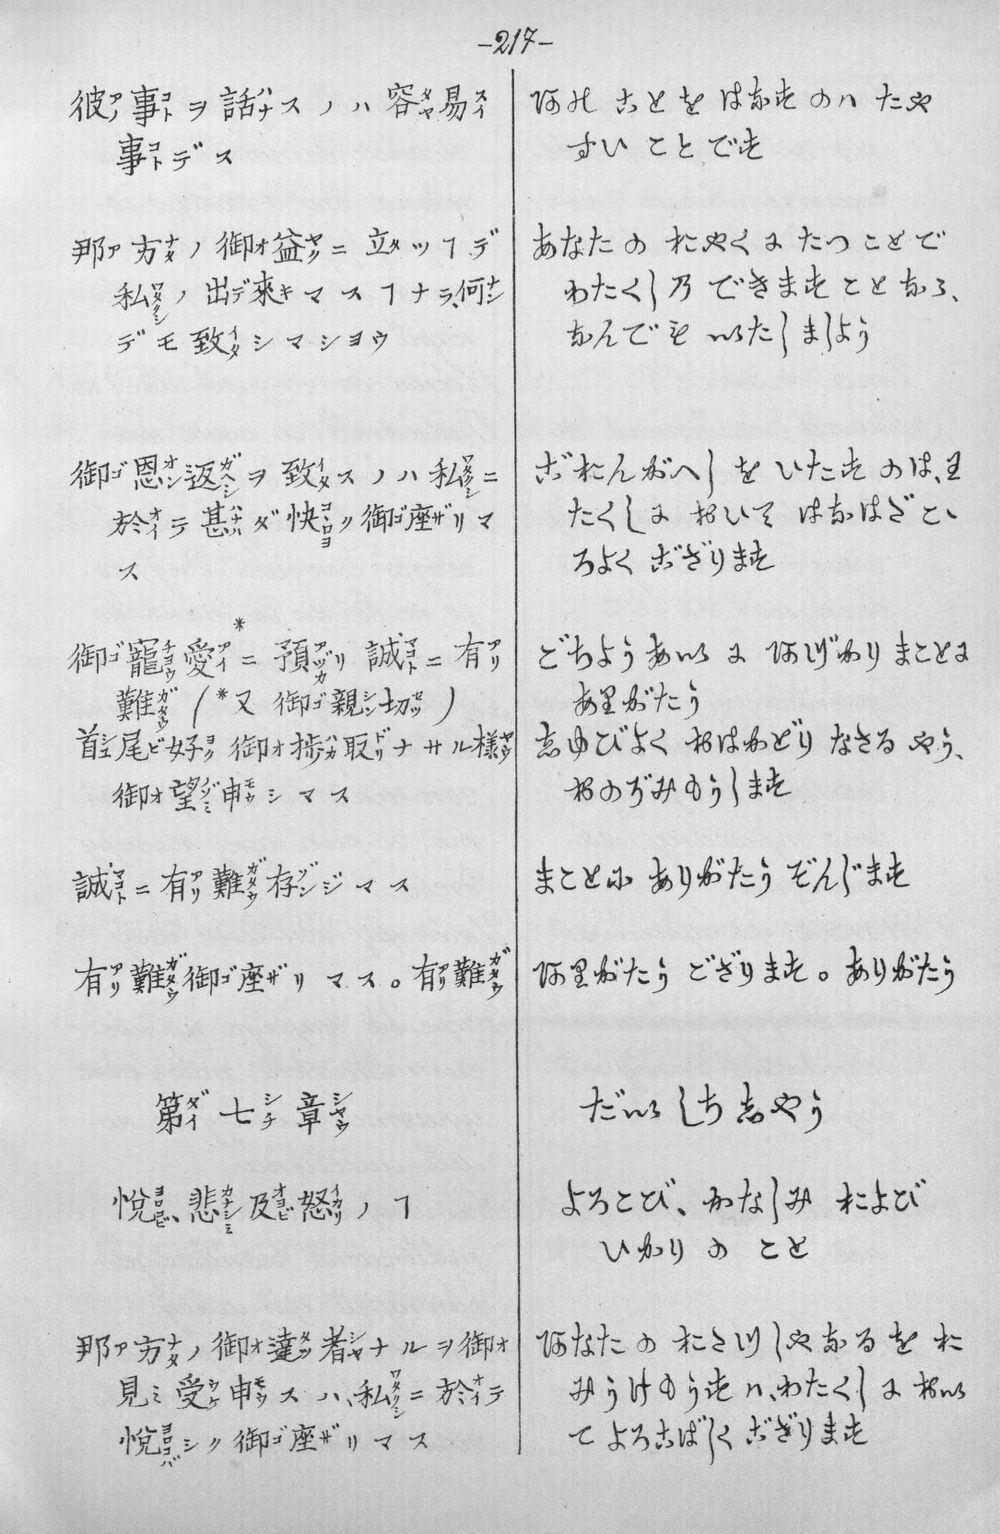 -217-
彼ノ事ヲ話スノハ容易イ
事デス
那方ノ御益ニ立ツヿデ
私ノ出来マスヿナラ、何ン
デモ致シマシヨウ
御恩返ヲ致スノハ私ニ
於テ甚ダ快ク御座リマ
ス
御寵愛*ニ預リ誠ニ有
難 (*又御親切)
首尾好御捗取ナサル様
御望申シマス
誠ニ有難存ジマス
有難御座リマス。有難
第七章
悦、悲及怒ノヿ
那方ノ御達者ナルヲ御
見受申スハ、私ニ於テ
悦シク御座リマス
あのことをはなすのハたや
すいことです
あなたのおやくにたつことで
わたくし乃できますことなら、
なんでもいたしましよう
ごおんがへしをいたすのは、わ
たくしにおいてはなはだこゝ
ろよくござります
ごちようあいにあづかりまことに
ありがたう
しゆびよくおはかどりなさるやう、
おのぞみもうします
まことにありがたうぞんじます
ありがたうござります。ありがたう
だいしちしやう
よろこび、かなしみおよび
いかりのこと
あなたのおたつしやなるをお
みうけもうすハ、わたくしにおい
てよろこばしくござります